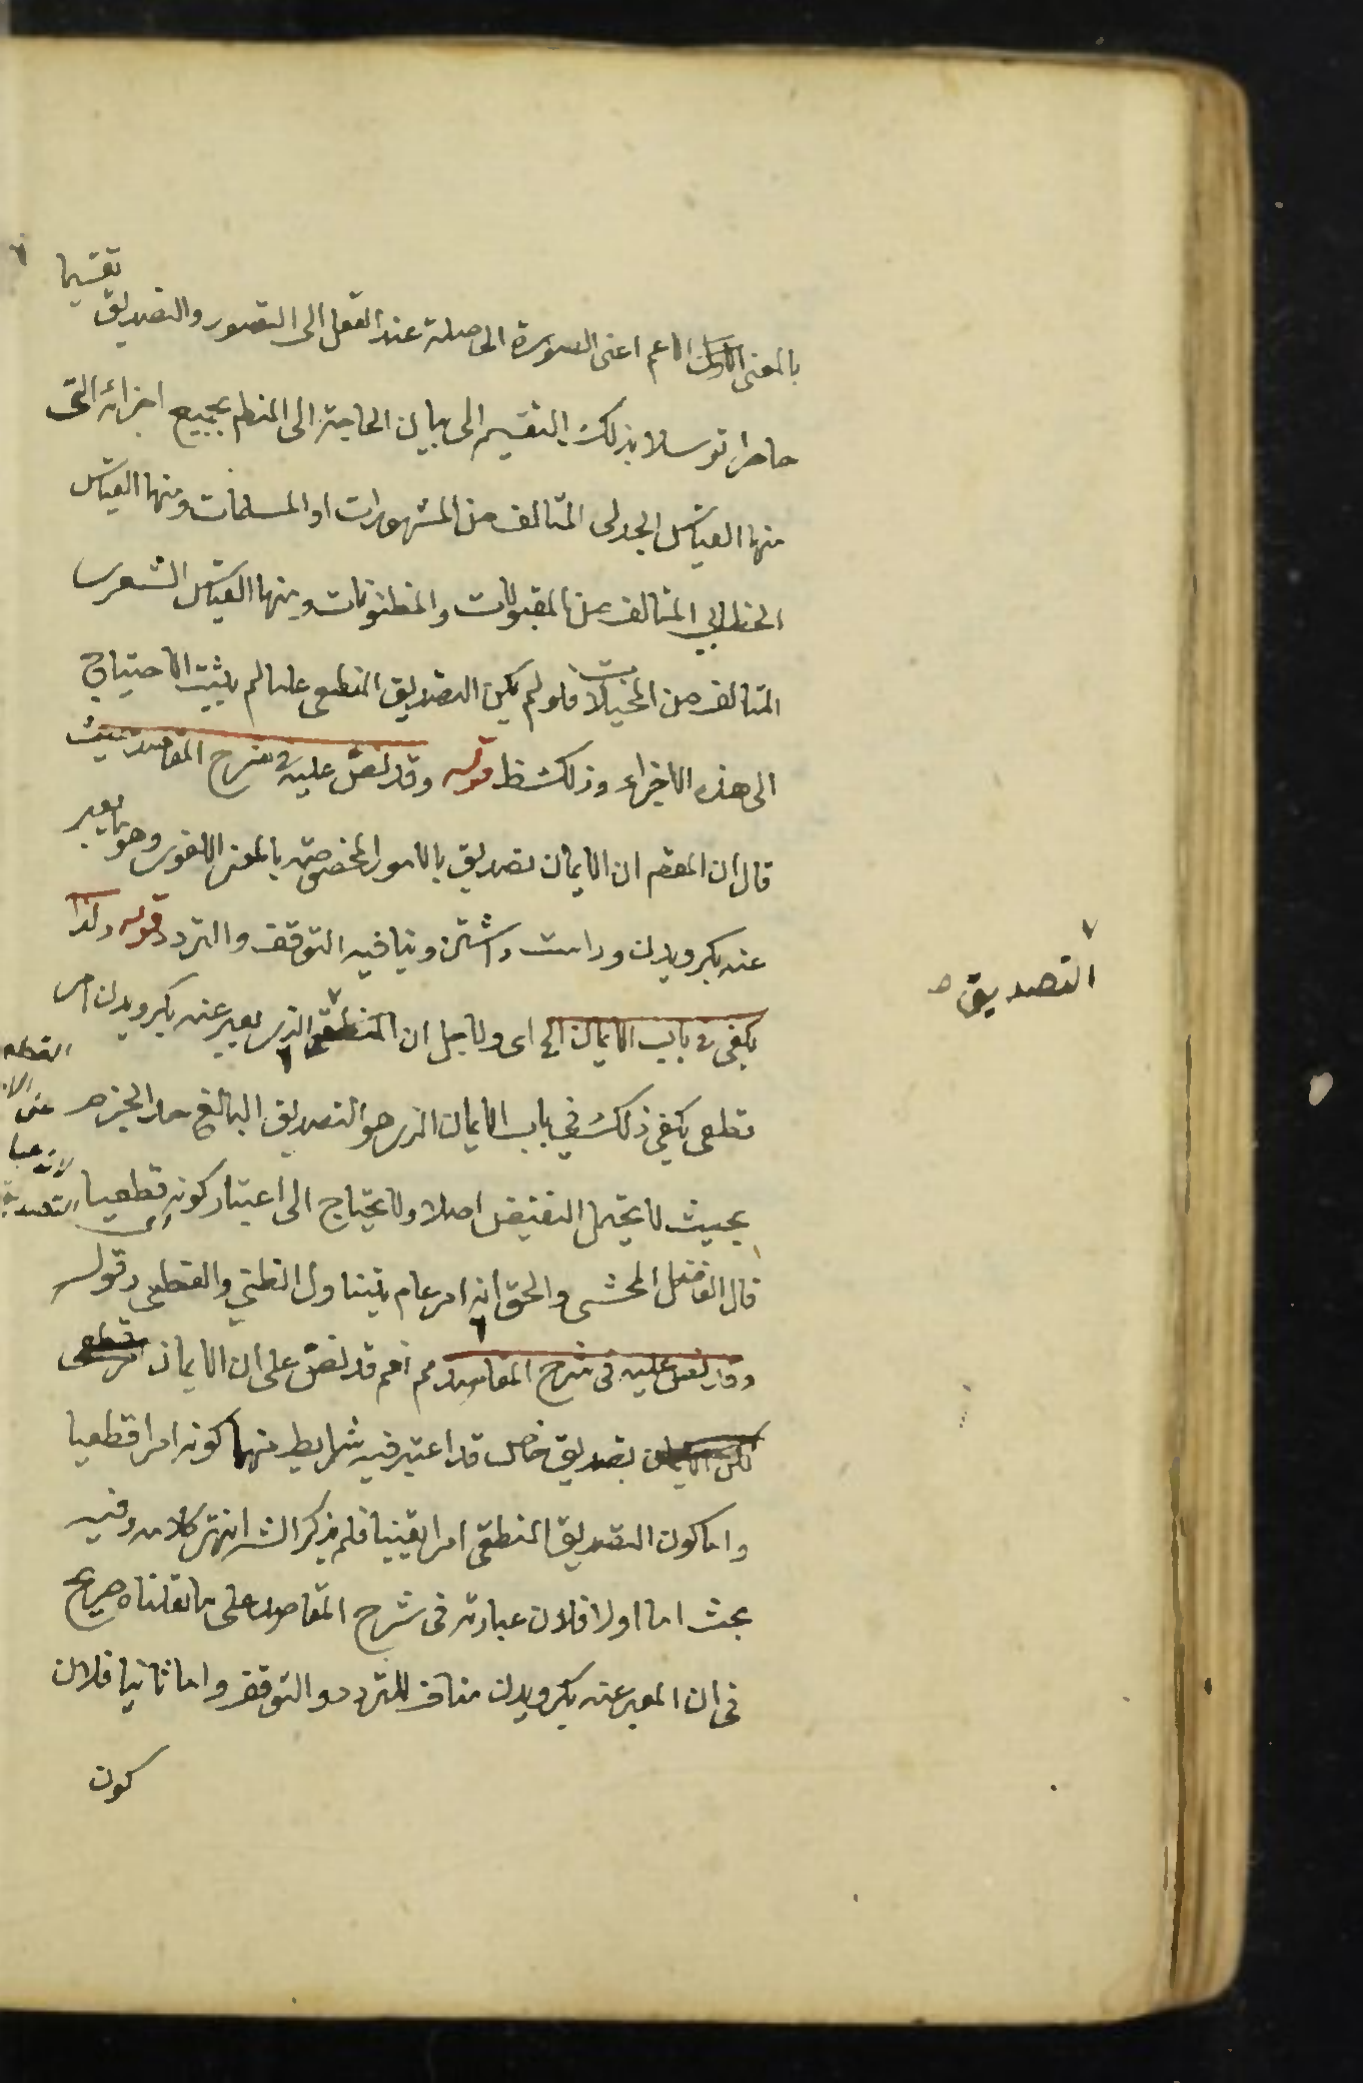 بالمعنى الاعم اعنى الصورة الحاصلة عند العقل الى التصور والتصديق تقسيما
حاصرا توسلا بذلك التقسيم الى بيان الحاجة الى المنطق بجميع اجزائه التى
منها القياس الجدلى المتالف من المشهورات او المسلمات ومنها القياس
الخطابي المتالف من المقبولات والمظنونات ومنها القياس الشعرى
المتالف من المخيلات فلو لم يكن التصديق المنطقى عاما لم يثبت الاحتياج
الى هذه الاجزاء وذلك ظ قوله وقد نص عليه في شرح المقاصد حيث
قال ان المعتم ان الايمان تصديق بالامور المخصوصة بالمعنى اللغوى وهو ما يعبر
عنه بكرويدن وراست داشتن وينافيه التوقف والتردد قوله ولذا
يكفى في باب الايمان الخ اى ولاجل ان الذى يعبر عنه بكرويدن امر
التصديق صح
قطعى يكفى ذلك في باب الايمان الذى هو التصديق البالغ حد الجزم
بحيث لا يحتمل النقيض اصلا ولا يحتاج الى اعتبار كونه قطعيا
قال الفاضل المحشى والحق انه امر عام يتناول الظني والقطعى وقوله
وقد نص عليه في شرح المقاصد مم نعم قد نص على ان الايمان
تصديق خاص قد اعتبر فيه شرايط منها كونه امرا قطعيا
واما كون التصديق المنطقى امرا يقينيا فلم يذكر الشر انتهى كلامه وفيه
بحث اما اولا فلان عبارته فى شرح المقاصد على ما نقلناه صريح
فى ان المعبر عنه بكرويدن مناف للتردد والتوقف واما ثانيا فلان
كون